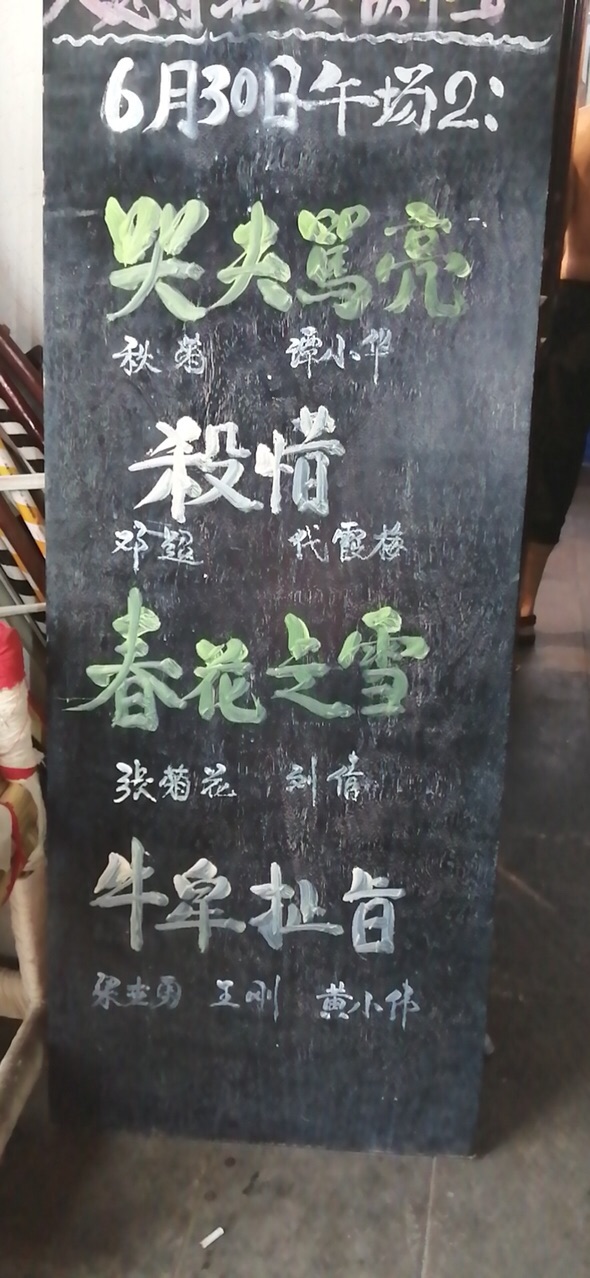 6月30日午场2:
哭夫骂亮
秋菊 谭小华
殺惜
邓超 代霞梅
春花之雪
张菊花 刘倩
牛皋扯旨
梁志勇 王刚 黄小伟